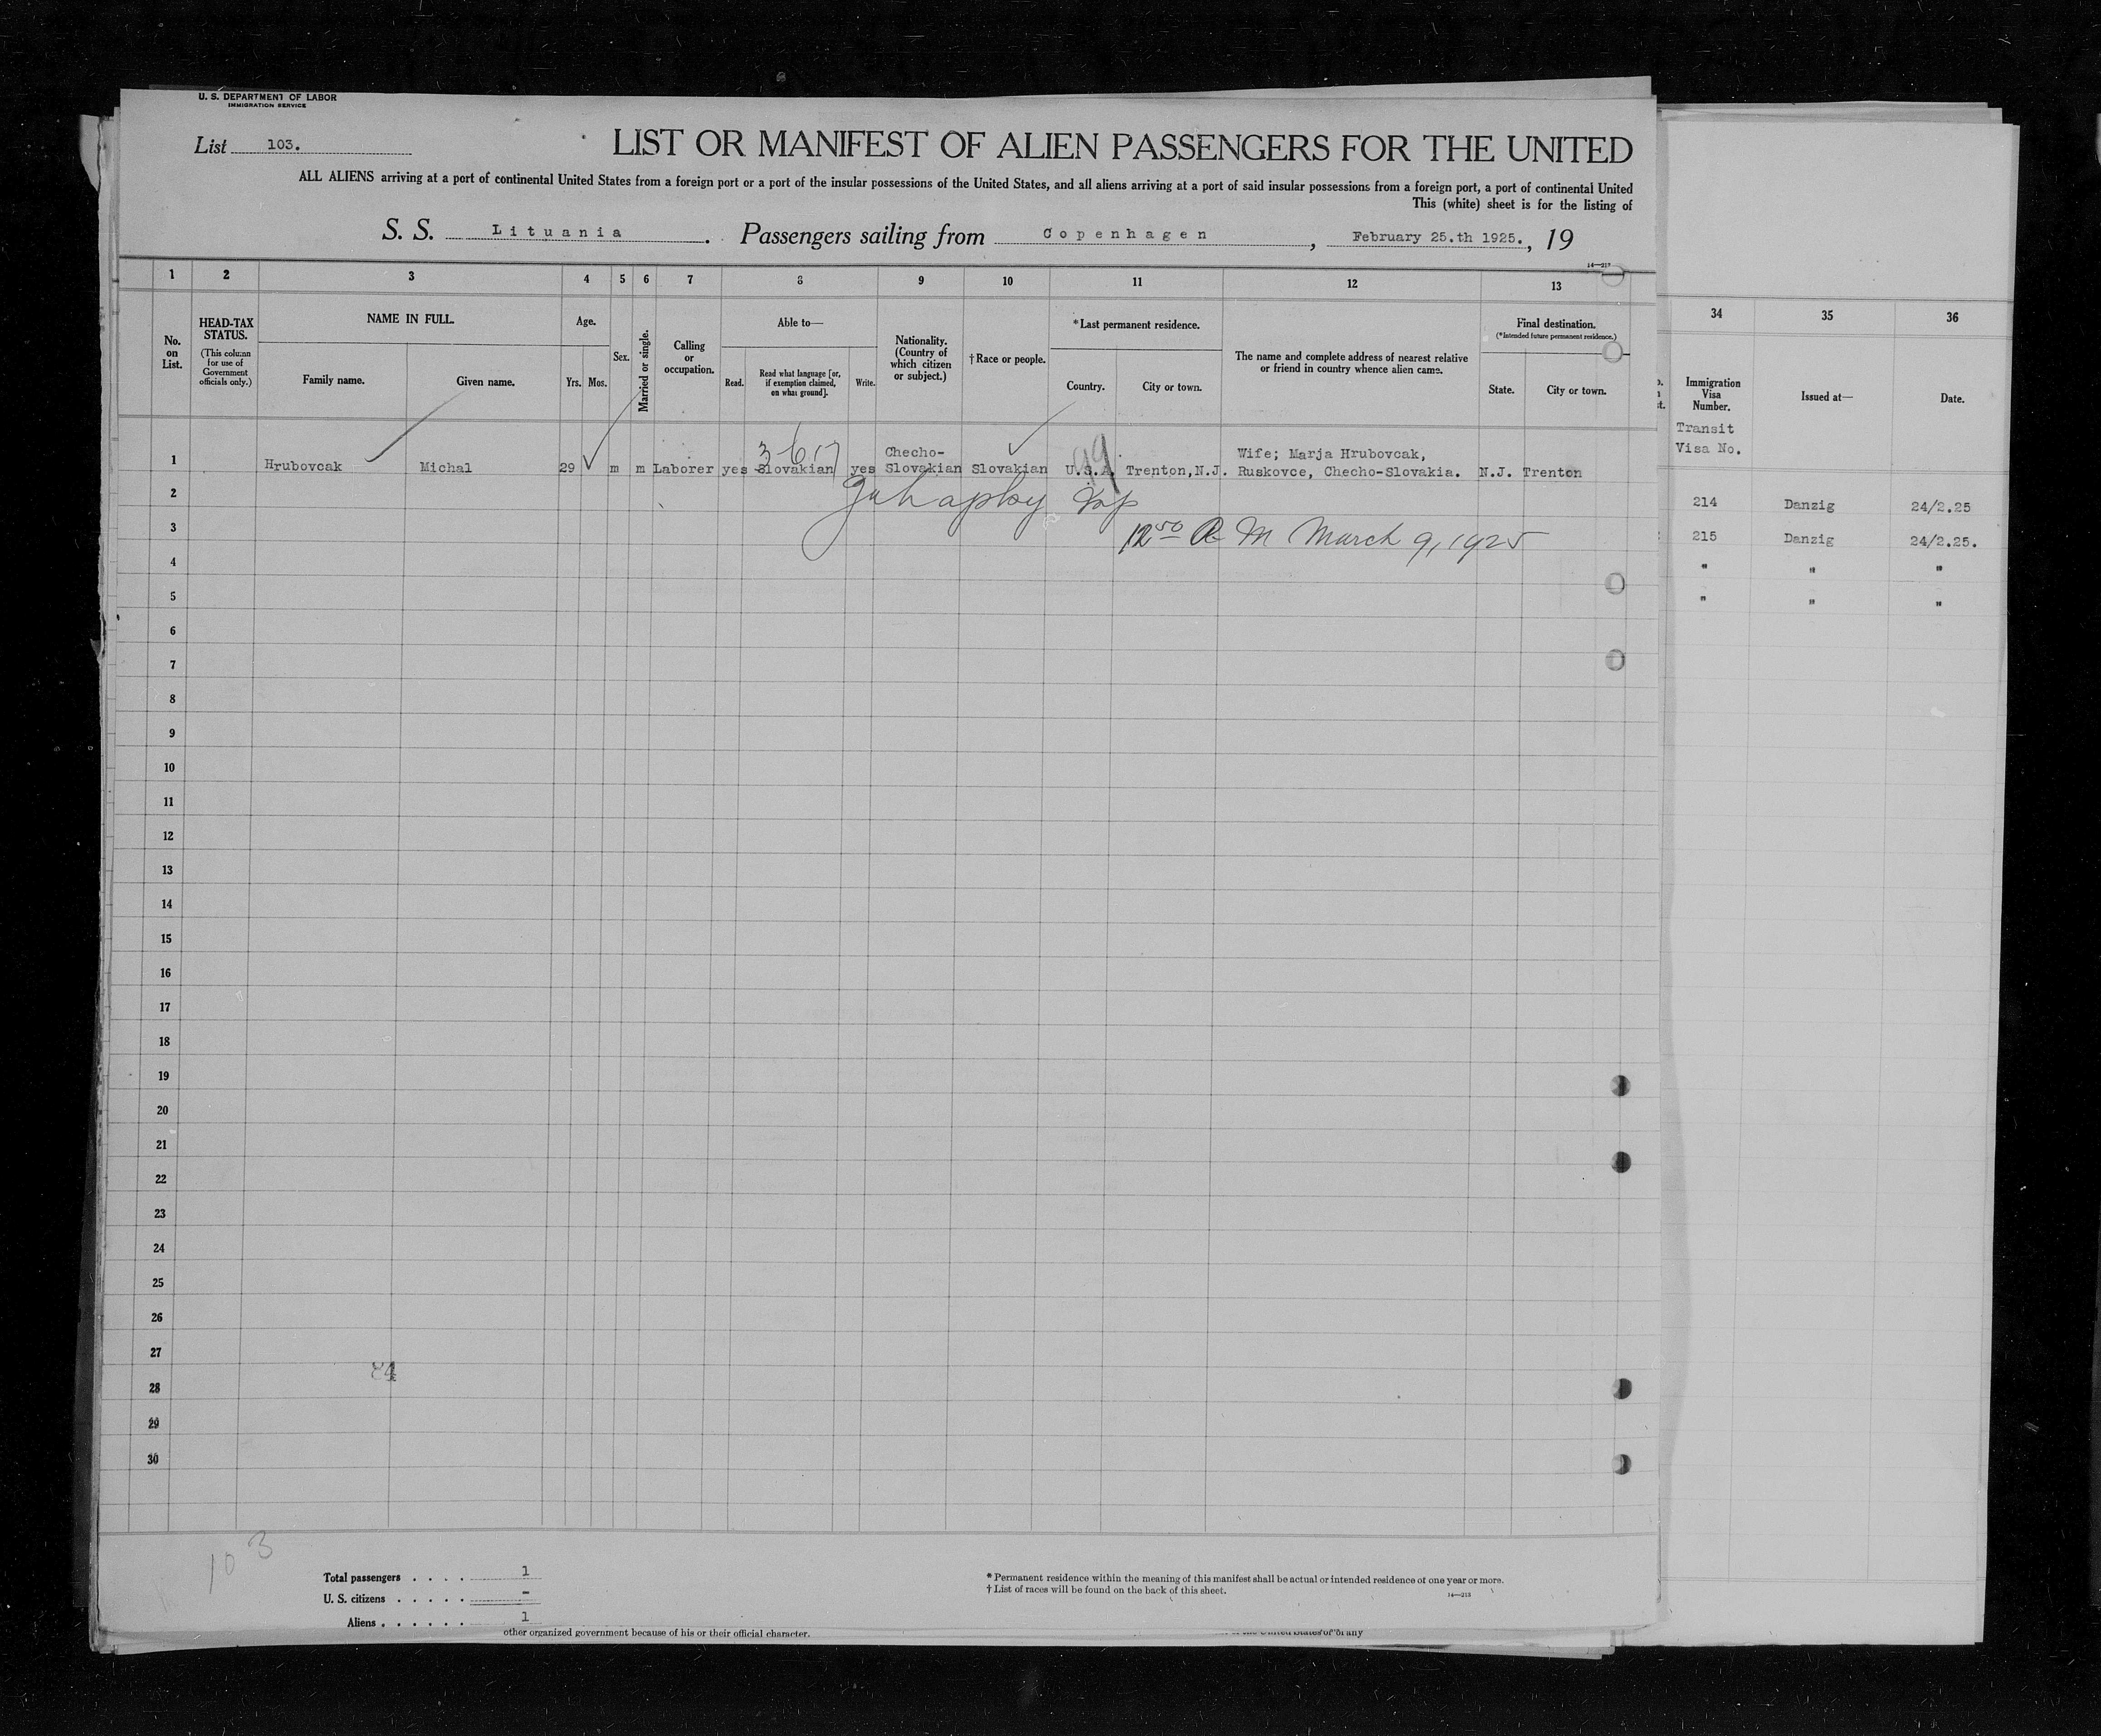 U. S. DEPARTMENT OF LABOR
IMMIGRATION SERVICE
List 103.
LIST OR MANIFEST OF ALIEN PASSENGERS FOR THE UNITED
ALL ALIENS arriving at a port of continental United States from a foreign port or a port of the insular possessions of the United States, and all aliens arriving at a port of said insular possessions from a foreign port, a port of continental United
This (white) sheet is for the listing of
S. S. Lituania . Passengers sailing from Copenhagen , February 25.th 1925. , 19
14—213
1 2 3 4 5 6 7 8 9 10 11 12 13
No. on List.
HEAD-TAX STATUS.
(This column for use of Government officials only.)
NAME IN FULL.
Family name. Given name.
Age.
Yrs. Mos.
Sex.
Married or single.
Calling or occupation.
Able to—
Read. Read what language [or, if exemption claimed, on what ground]. Write.
Nationality. (Country of which citizen or subject.)
†Race or people.
*Last permanent residence.
Country. City or town.
The name and complete address of nearest relative or friend in country whence alien came.
Final destination.
(*Intended future permanent residence.)
State. City or town.
34 35 36
Immigration Visa Number. Issued at— Date.
Transit
Visa No.
1 Hrubovcak Michal 29 m m Laborer yes Slovakian yes Checho-Slovakian Slovakian U.S.A. Trenton,N.J. Wife; Marja Hrubovcak, Ruskovce, Checho-Slovakia. N.J. Trenton
99
2
3
12 50 A M March 9, 1925
4
5
6
7
8
9
10
11
12
13
14
15
16
17
18
19
20
21
22
23
24
25
26
27
28
29
30
214 Danzig 24/2.25
215 Danzig 24/2.25.
" " "
" " "
103
Total passengers . . . . 1
U. S. citizens . . . . . -
Aliens . . . . . . 1
* Permanent residence within the meaning of this manifest shall be actual or intended residence of one year or more.
† List of races will be found on the back of this sheet.
14—213
other organized government because of his or their official character.
the United States or of any